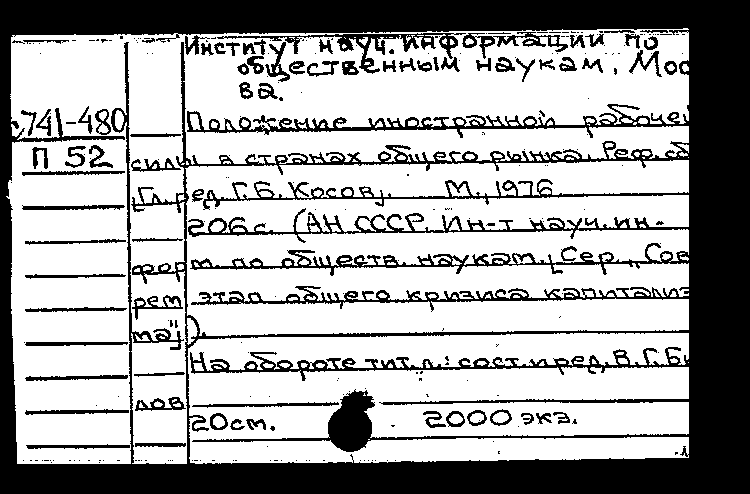 Институт науч. информации по
общественным наукам, Мос
ва.
741-480 Положение иностранной рабочей
П 52 силы в странах общего рынка. Реф. сб
[Гл. ред. Г.Б. Косов]. М., 1976.
206 с. (АН СССР. Ин-т науч. ин-
форм. по обществ. наукам. [Сер. „Сов
рем этап общего кризиса капитализ
ма"]).
На обороте тит. л.: сост. и ред. В.Г. Би
лов
20 см. 2000 экз.